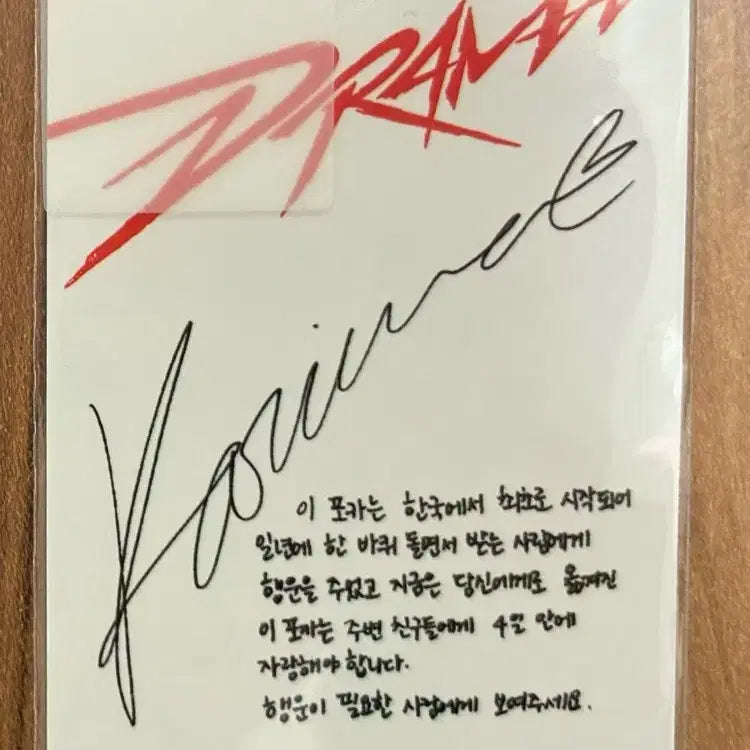 DRAMA
Karina
이 포카는 한국에서 최초로 시작되어
일년에 한 바퀴 돌면서 받는 사람에게
행운을 주었고 지금은 당신에게로 옮겨진
이 포카는 주변 친구들에게 4일 안에
자랑해야 합니다.
행운이 필요한 사람에게 보여주세요.